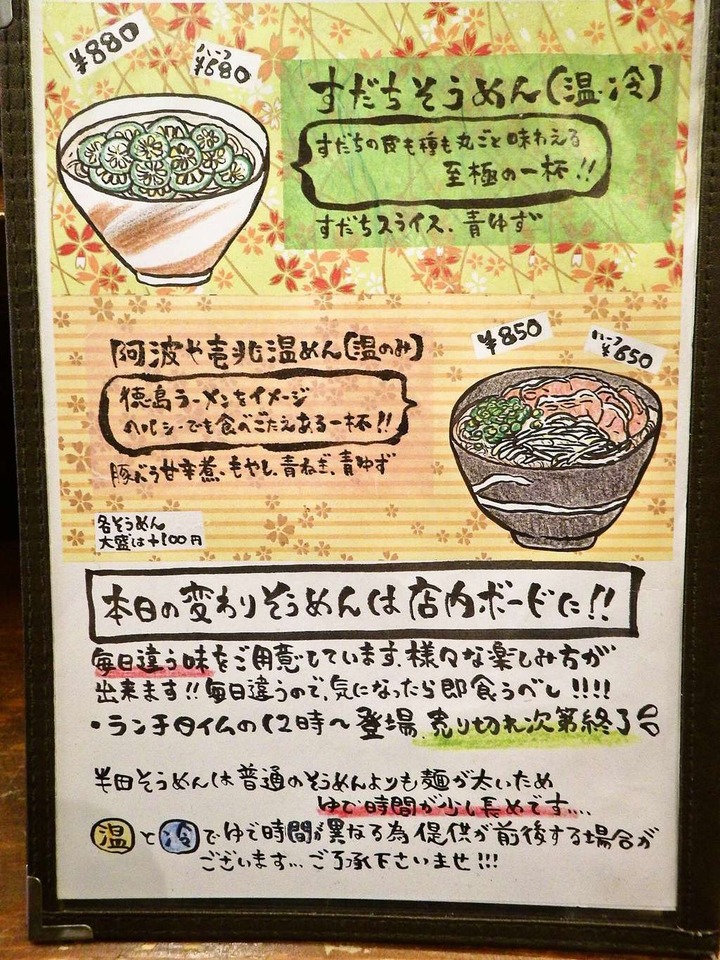 ¥880
ハーフ
¥680
すだちそうめん(温・冷)
すだちの皮も種も丸ごと味わえる
至極の一杯!!
すだちスライス、青ゆず
阿波や壱兆温めん(温のみ)
徳島ラーメンをイメージ
ヘルシーでも食べごたえある一杯!!
豚バラ甘辛煮、もやし、青ねぎ、青ゆず
¥850
ハーフ
¥650
各そうめん
大盛は+100円
本日の変わりそうめんは店内ボードに!!
毎日違う味をご用意しています。様々な楽しみ方が
出来ます!!毎日違うので、気になったら即食うべし!!!!
・ランチタイムの12時〜登場 売り切れ次第終了
半田そうめんは普通のそうめんよりも麺が太いため
ゆで時間が少し長めです....
温と冷でゆで時間が異なる為 提供が前後する場合が
ございます...ご了承下さいませ!!!